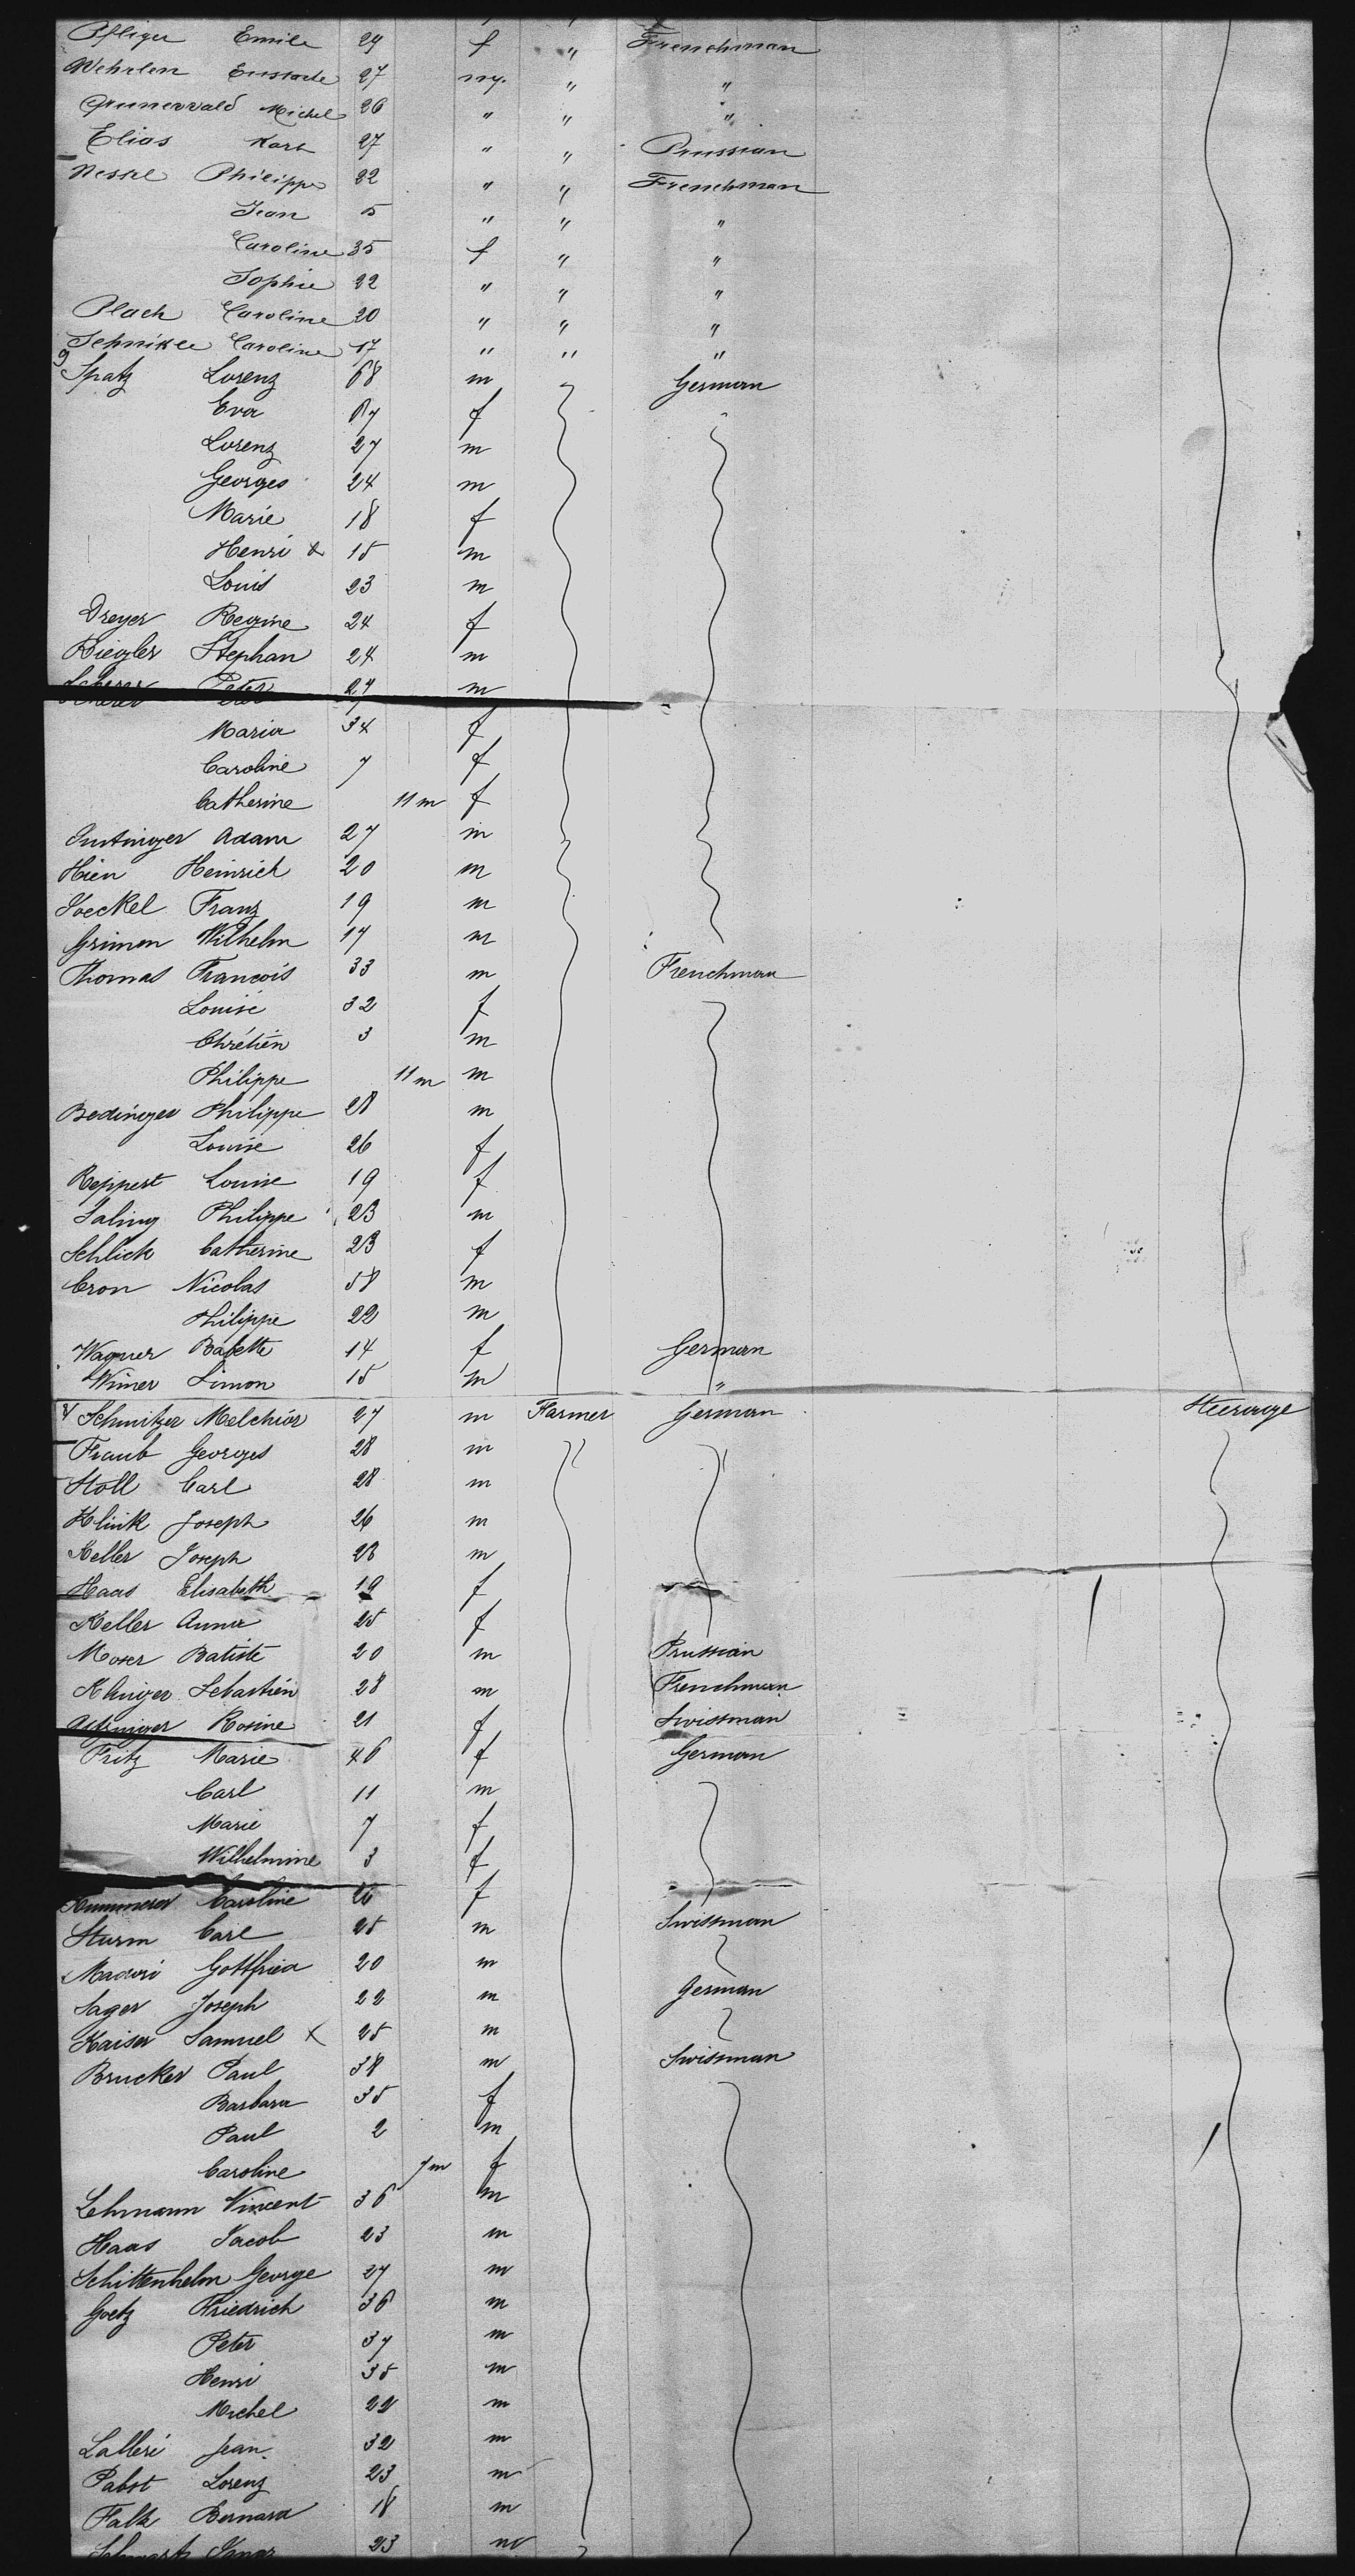 Pfliger Emile 29 f " Frenchman
Wehrlen Eustache 27 m " "
Grunerwald Michel 26 " " "
Elias Karl 27 " " Prussian
Nessel Philippe 22 " " Frenchman
Jean 5 " " "
Caroline 35 f " "
Sophie 22 " " "
Plach Caroline 20 " " "
Caroline 17 " " "
Spatz Lorenz 68 m German
Eva 67 f
Lorenz 27 m
Georges 24 m
Marie 18 f
Henri x 15 m
Louis 23 m
Dreyer Regine 24 f
Biegler Stephan 24 m
Scherer Peter 27 m
Maria 34 f
Caroline 7 f
Catherine 11 m f
Adam 27 m
Hien Heinrich 20 m
Joeckel Franz 19 m
Grimen Wilhelm 17 m
Thomas François 33 m Frenchman
Louise 32 f
Chrétien 3 m
Philippe 11 m m
Bedinger Philippe 28 m
Louise 26 f
Reppert Louise 19 f
Saling Philippe 23 m
Schlick Catherine 23 f
Cron Nicolas 58 m
Philippe 22 m
Wagner Babette 14 f German
Wimer Simon 15 m "
Schnitzer Melchior 27 m Farmer German Steerage
Fraub Georges 28 m
Stoll Carl 28 m
Klink Joseph 26 m
Keller Joseph 23 m
Haas Elisabeth 19 f
Keller Anna 25 f
Moser Batiste 20 m Prussian
Klinger Sebastien 28 m Frenchman
Rosine 21 f Swissman
Fritz Marie 46 f German
Carl 11 m
Marie 7 f
Wilhelmine 3 f
Kummerer Caroline 26 f
Sturm Carl 25 m Swissman
Gottfried 20 m
Sager Joseph 22 m German
Kaiser Samuel x 25 m
Brucker Paul 38 m Swissman
Barbara 35 f
Paul 2 m
Caroline 7 m f
Lehmann Vincent 36 m
Haas Jacob 23 m
Schittenhelm George 27 m
Goetz Friedrich 36 m
Peter 37 m
Henri 35 m
Michel 22 m
Lalleri Jean 32 m
Pabst Lorenz 23 m
Falk Bernard 18 m
23 m